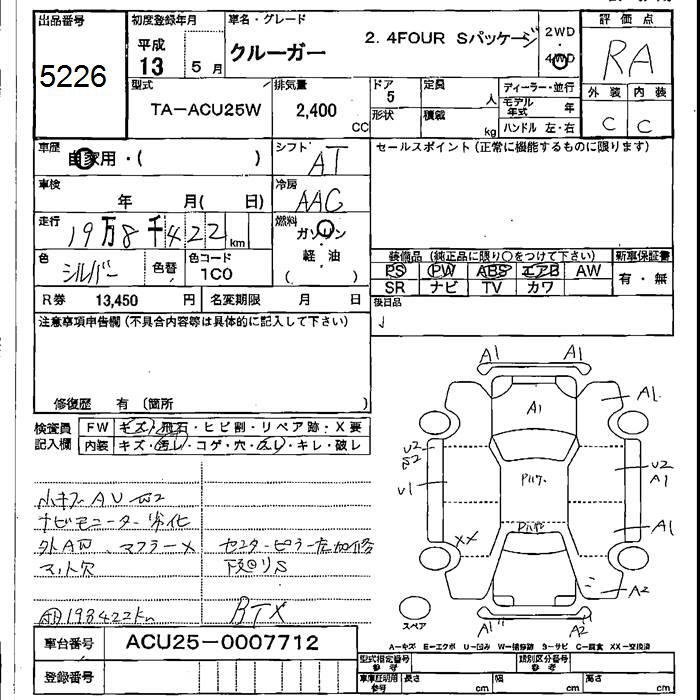 出品番号
5226
初度登録年月
平成
13 5 月
車名・グレード
クルーガー 2. 4FOUR Sパッケージ
2WD
・
4WD
評価点
RA
外装 内装
C C
型式
TA-ACU25W
排気量
2,400
CC
ドア
5
形状
定員
人
積載
kg
ディーラー・並行
モデル年式 年
ハンドル 左・右
車歴
自家用・( )
シフト
AT
セールスポイント(正常に機能するものに限ります)
車検
年 月( 日)
冷房
AAC
走行
19万8千422 km
燃料
ガソリン
軽・油
( )
色
シルバー
色替
色コード
1C0
装備品(純正品に限り○をつけて下さい)
新車保証書
PS PW ABS エアB AW
有・無
SR ナビ TV カワ
R券 13,450 円
名変期限 月 日
後日品
注意事項申告欄(不具合内容等は具体的に記入して下さい)
修復歴 有(箇所 )
検査員
記入欄
FW キズ・飛石・ヒビ割・リペア跡・X要
内装 キズ・汚レ・コゲ・穴・スレ・キレ・破レ
小キズ AU W2
ナビモニター劣化
外AW マフラーX
センターピラー左加修
マット欠
下廻りS
198422km
BTX
A1 A1
A1
A1
U2
W2
U1
U2
A1
A1
XX
A2
A1
A2
スペア
A-キズ E-エクボ U-凹み W-補修跡 S-サビ C-腐食 XX-交換済
車台番号
ACU25-0007712
登録番号
型式指定番号
参考
類別区分番号
参考
車庫証明用
参考
長さ cm 幅 cm 高さ cm